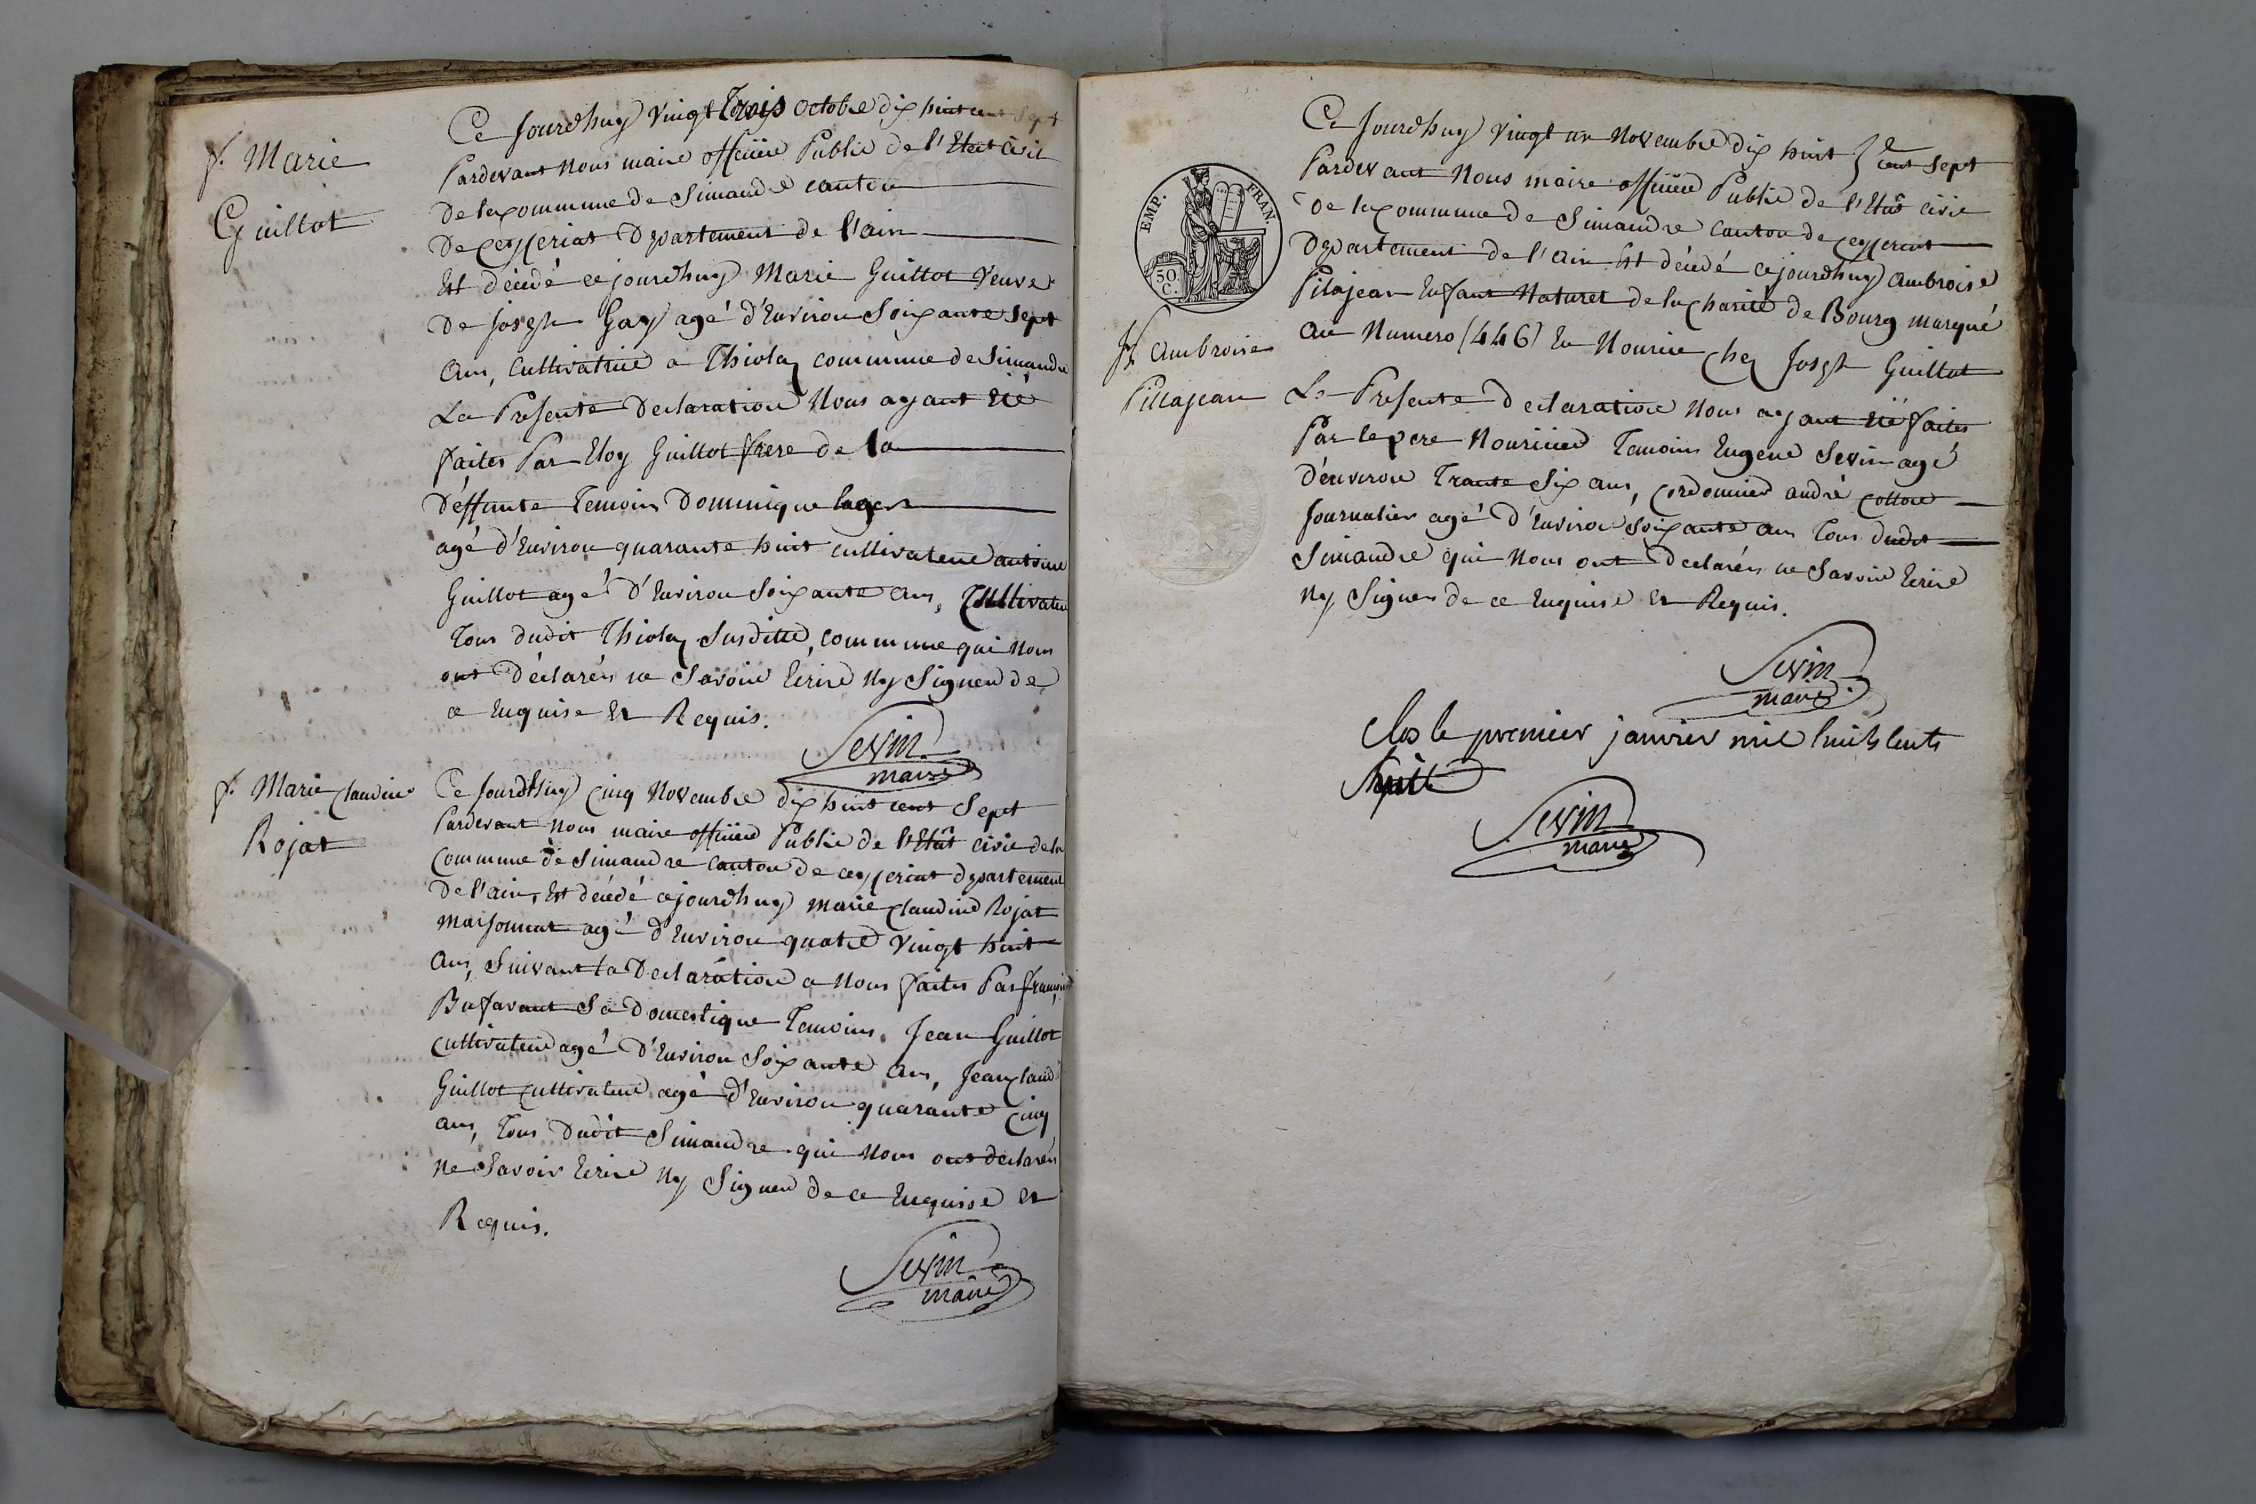 f. Marie
Guillot
Ce Jourdhuy vingt trois octobre dix huit cent sept
Pardevant Nous maire officier Public de l'Etat Civil
De la commune de Simandre canton
De ceyseriat Département de l'ain
Est décédé ce jourdhuy Marie Guillot veuve
De Joseph Gay agé d'Environ Soixante sept
Ans, Cultivatrice a Thiolas commune de Simandre
La Presente Declaration Nous ayant été
faites Par Eloy Guillot frere de la
Déffunte Temoins Dominique
agé d'Environ quarante huit cultivateur antoine
Guillot agé D'Environ Soixante ans, Cultivateur
Tous dudit Thiolas Susditte commune qui Nous
ont Déclarés ne Savoir Ecrire Ny Signer de
ce Enquise Et Requis.
Sevin
maire
f. Marie Claudine
Rojat
Ce Jourdhuy Cinq Novembre dix huit cent Sept
Pardevant Nous maire officier Public de l'Etât civil de la
Commune de Simandre canton de ceyseriat département
De l'ain, Est décédé ce jourdhuy Marie Claudine Rojat
Maisonnat agé d'Environ quatre vingt huit
Ans, Suivant la Declaration a Nous faites Par
Bufavant Sa Domestique Temoins. Jean Guillot
Cultivateur agé D'Environ Soixante ans, Jean Claude
Guillot Cultivateur agé d'Environ quarante Cinq
ans, Tous Dudit Simandre qui Nous ont déclarés
Ne Savoir Ecrire Ny Signer de ce Enquisse et
Requis.
Sevin
maire
EMP. FRAN.
50
C.
f. Ambroise
Pillajean
Ce Jourdhuy vingt un Novembre dix huit cent Sept
Pardevant Nous maire officier Public de l'Etât civil
De la Commune de Simandre Canton de ceyseriat
Département de l'ain Est décédé ce jourdhuy ambroise
Pilajean Enfant Naturel de la Charité de Bourg marqué
au Numero (446) En Nourice chez Joseph Guillot
La Presente Declaration Nous ayant été faites
Par le pere Nouricier Temoins Eugene Sevin agé
d'environ Trante Six ans, Cordonnier andré Collon
Journalier agé d'Environ Soixante ans Tous dudit
Simandre qui Nous ont Declarés ne Savoir Ecrire
Ny Signer de ce Enquise Et Requis.
Sevin
maire
Clos le premier janvier mil huit cents
huit
Sevin
maire